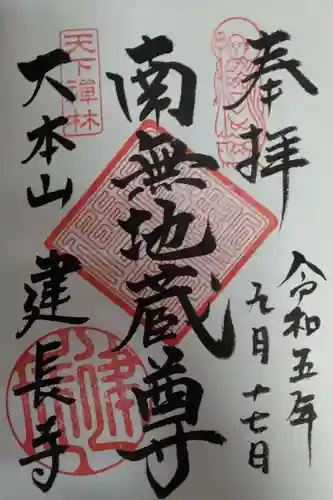 奉拝
令和五年
九月十七日
南無地蔵尊
天下禅林
大本山
建長寺